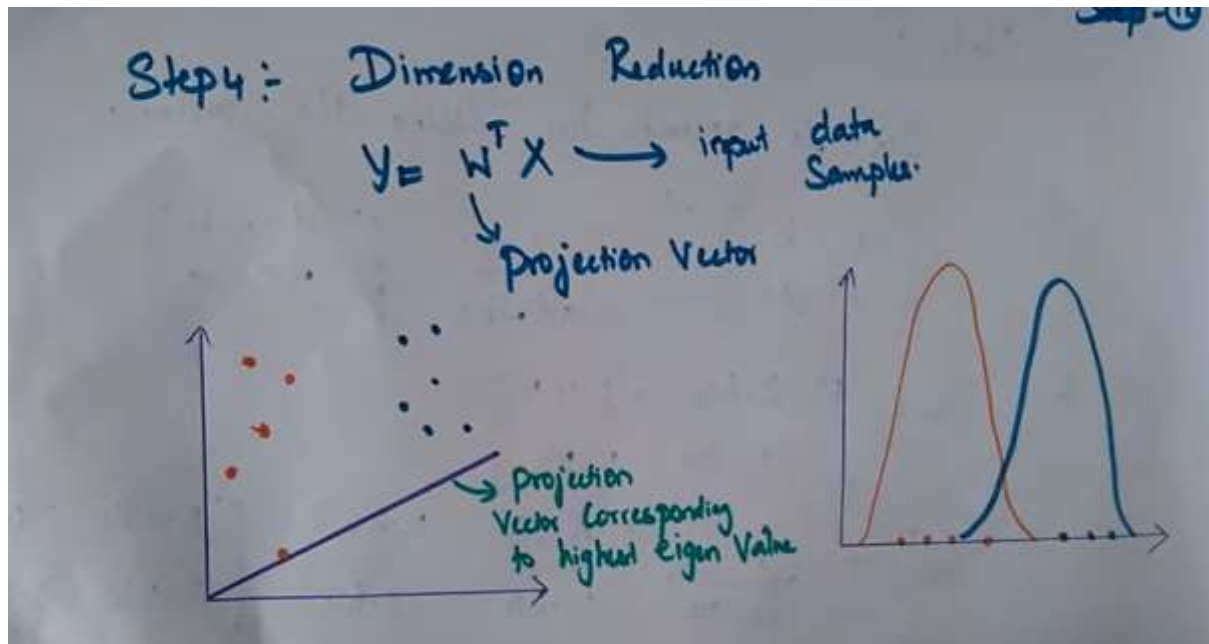 Step 4 :- Dimension Reduction
Y = W^T X → input data
Samples.
Projection Vector
Projection
Vector Corresponding
to highest Eigen Value